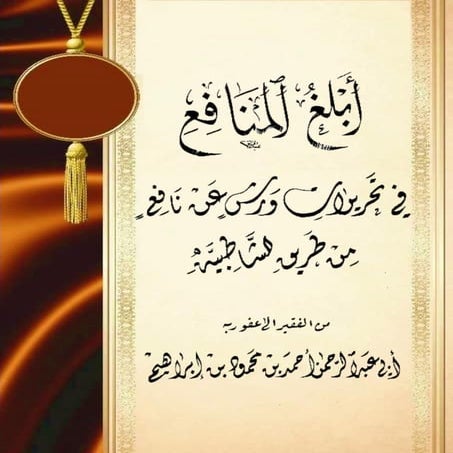 أَبْلَغُ الْمَنَافِعِ
فِي تَحْرِيرَاتِ وَرْشٍ عَنْ نَافِعٍ
مِنْ طَرِيقِ الشَّاطِبِيَّةِ
من الفقير إلى عفو ربه
أبي عبد الرحمن أحمد بن محمود بن إبراهيم